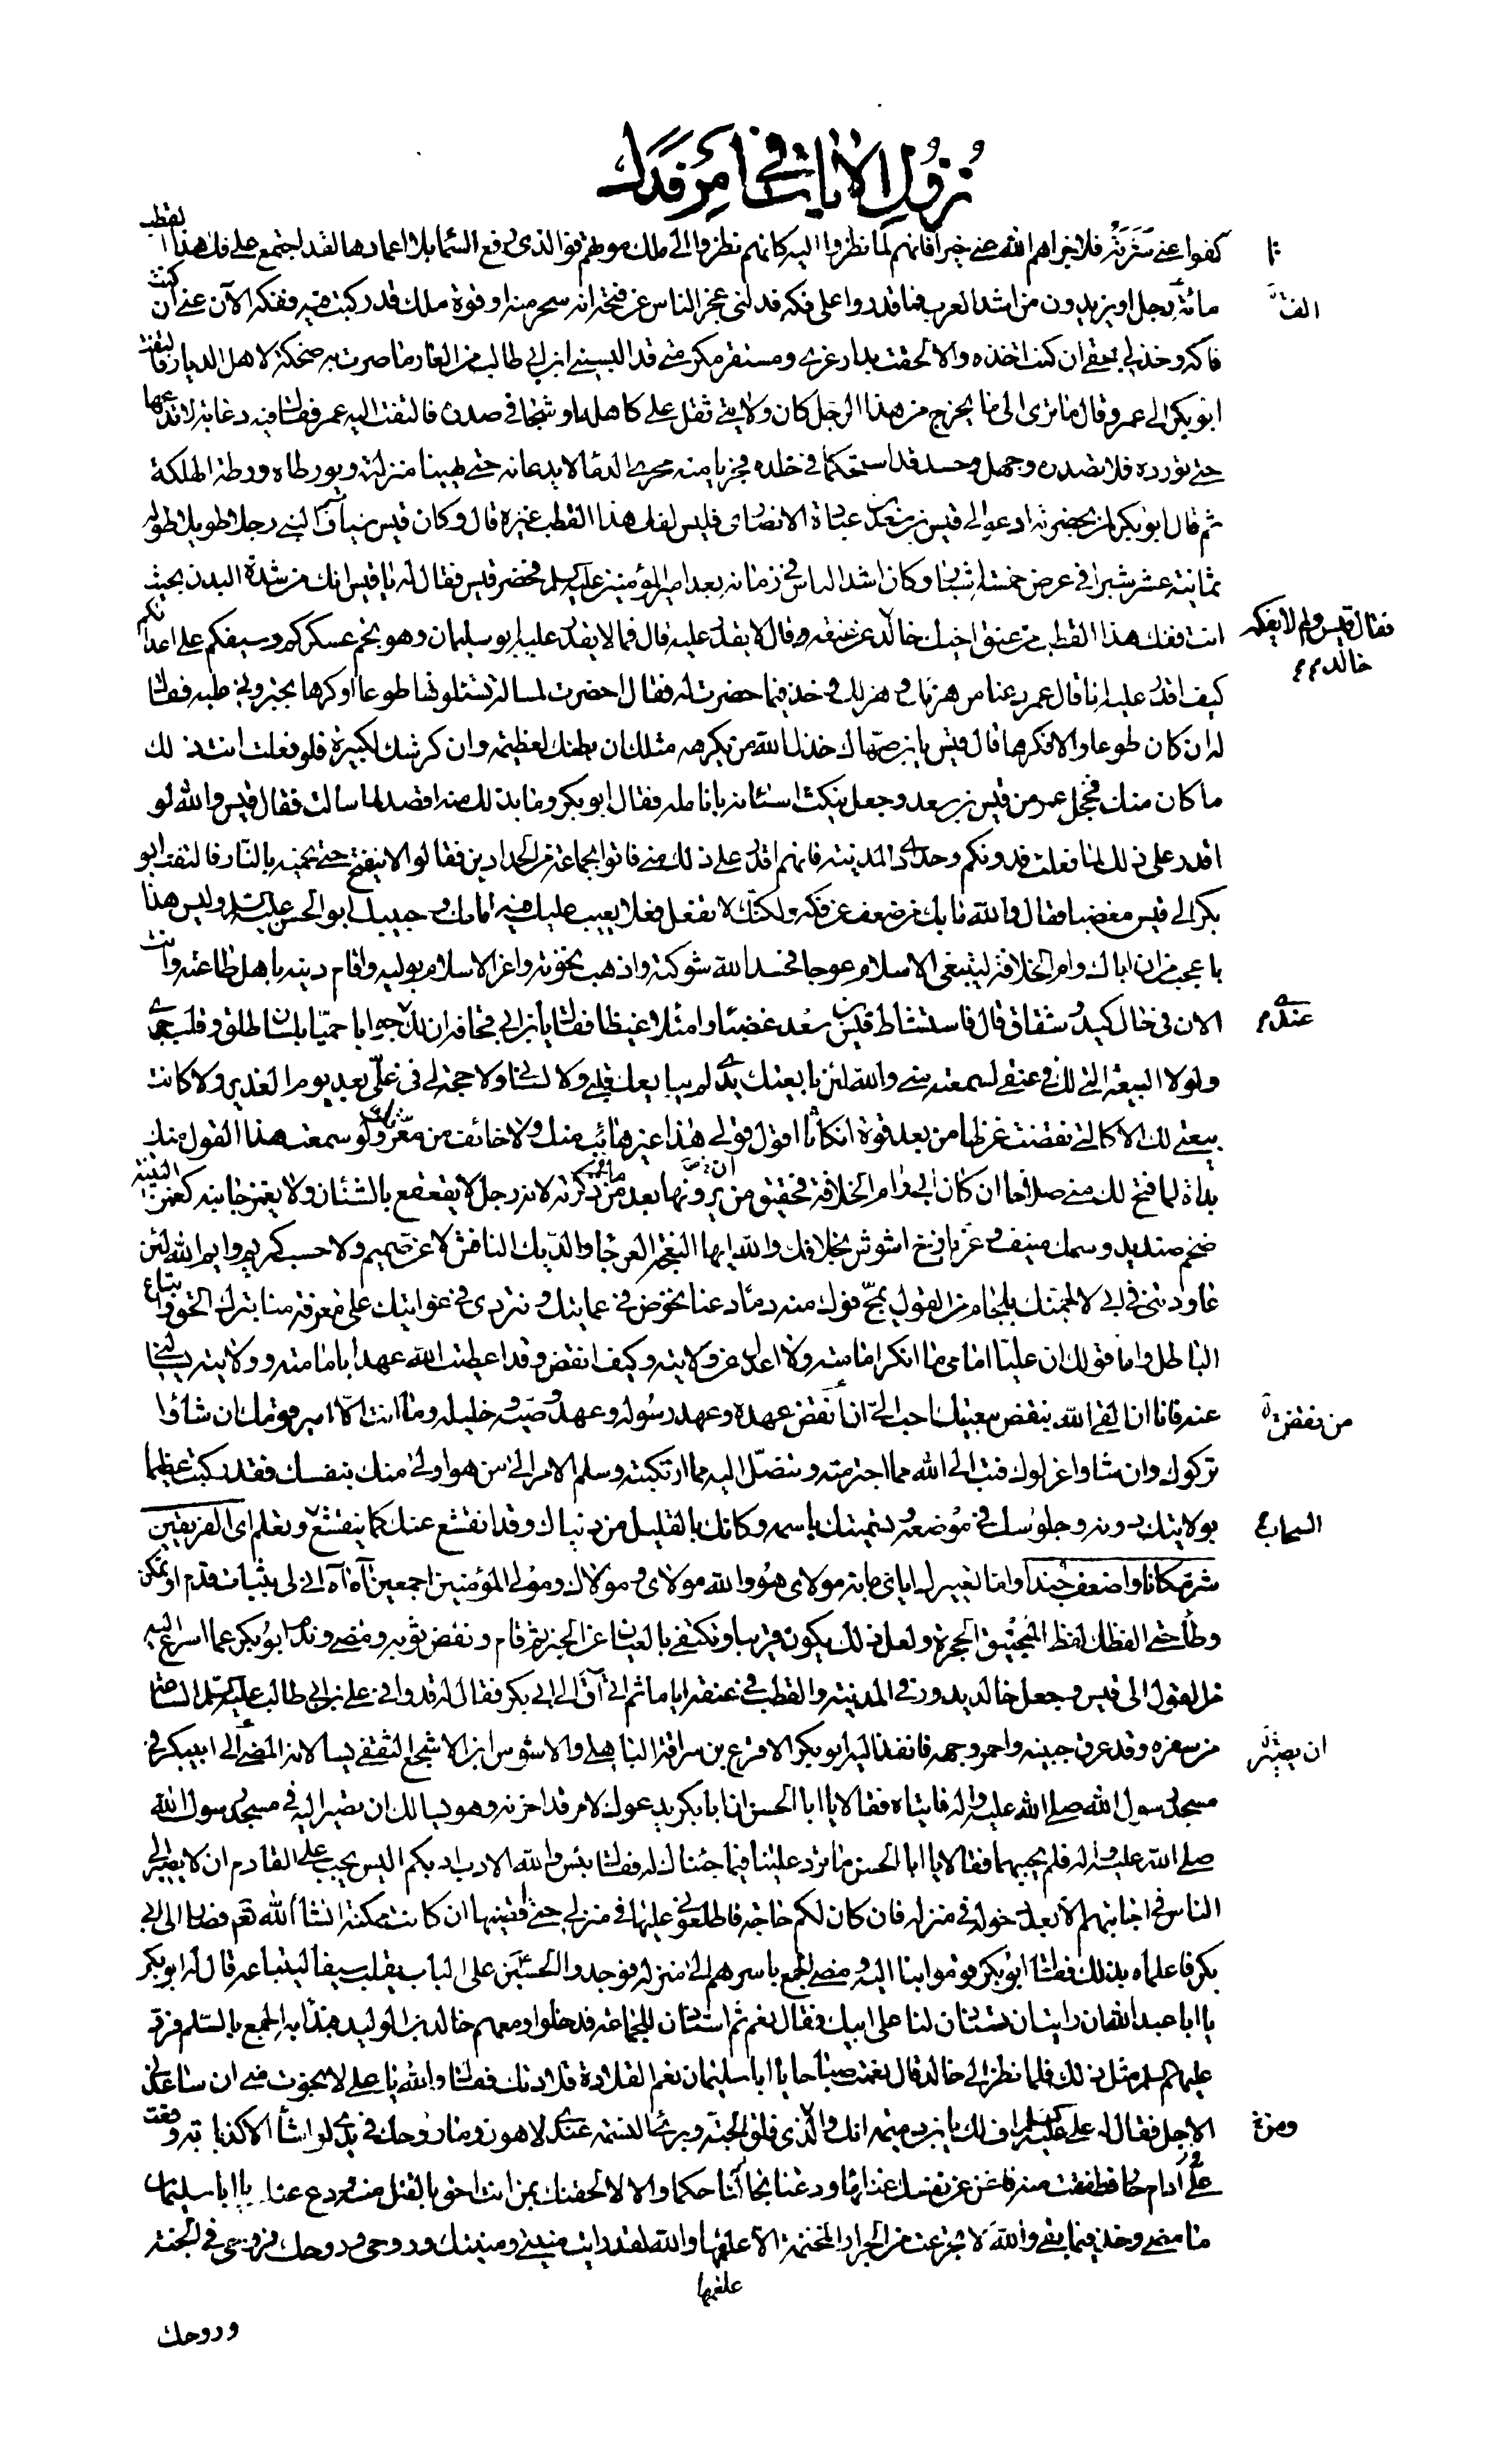 نزول الآيات في أمر فدك
كفوا عن شرته فلا جزاهم الله عني خيرا فانهم لما نظروا اليه كانهم نظروا الى ملك موتهم فوالذي رفع السما بلا اعمادها لقد اجتمع على فك هذا القطب
مائة رجل او يزيدون من اشد العرب فما قدروا على فكه فدلني عجز الناس عن فتحه انه سحر منه او قوة ملك قد ركبت فيه ففكه الآن عني ان كنت
فاكه وخذ لي بحقي ان كنت اخذه والا لحقت بدار عزي ومستقر مكرمتي قد البسني ابن ابي طالب من العار ما صرت به ضحكة لاهل الديار فالتفت
ابو بكر الى عمر وقال ما ترى الى ما يخرج من هذا الرجل كان ولايتي ثقل على كاهله او شجا في صدره فالتفت اليه عمر فقال فيه دعابة لا تدعها
حتى تورده فلا تصدره وجهل وحسد قد استحكما في خلده فجريا منه مجرى الدما لا يدعانه حتى يهينا منزلته ويورطاه ورطة الهلكة
ثم قال ابو بكر لمن بحضرته ادعوا الى قيس بن سعد بن عبادة الانصاري فليس لفك هذا القطب غيره قال وكان قيس سياف النبي رجلا طويلا طوله
ثمانية عشر شبرا في عرض خمسة اشبار وكان اشد الناس في زمانه بعد امير المؤمنين عليه السلم فحضر قيس فقال له يا قيس انك من شدة البدن بحيث
انت ففك هذا القطب من عنق اخيك خالد فقال قيس ولم لا يفكه خالد عن عنقه وقال لا يقدر عليه قال فما لا يقدر عليه ابو سليمان وهو نجم عسكركم وسيفكم على اعدائكم
كيف اقدر عليه انا قال عمر دعنا من هزئك وهزلك وخذ فيما حضرت له فقال احضرت لمسالة تسئلونها طوعا او كرها تجبروني عليه فقال
له ان كان طوعا والا فكرها قال قيس يا بن صهاك خذل الله من يكرهه مثلك ان بطنك لعظيمة وان كرشك لكبيرة فلو فعلت انت ذلك
ما كان منك فخجل عمر من قيس بن سعد وجعل ينكت اسنانه بانامله فقال ابو بكر وما بذلك منه اقصد لما سالت فقال قيس والله لو
اقدر على ذلك لما فعلت فدونكم وحدادي المدينة فانهم اقدر على ذلك مني فاتوا بجماعة من الحدادين فقالوا لا ينفتح حتى نحميه بالنار فالتفت ابو
بكر الى قيس مغضبا فقال والله ما بك من ضعف عن فكه ولكنك لا تفعل فعلا يعيب عليك فيه امامك وحبيبك ابو الحسن عليه السلم وليس هذا
باعجب من ان اباك رام الخلافة ليبتغي الاسلام عوجا فخسد الله شوكته واذهب نخوته واعز الاسلام بوليه واقام دينه باهل طاعته وانت
الان في حال كيد وشقاق قال فاستشاط قيس بن سعد غضبا وامتلا غيظا فقال يا بن ابي قحافة ان لك عندي جوابا حميا بلسان طلق وقلب جري
ولولا البيعة التي لك في عنقي لسمعته مني والله لئن بايعتك يدي لم يبايعك قلبي ولا لساني ولا حجة لي في علي بعد يوم الغدير ولا كانت
بيعتي لك الا كالتي نقضت غزلها من بعد قوة انكاثا اقول قولي هذا غير هائب منك ولا خائف من معرتك ولو سمعت هذا القول منك
بداة لما فتح لك مني صلحا ان كان ابي رام الخلافة فحقيق من يرومها بعد من ذكرته لانه رجل لا يقعقع بالشنان ولا يغمز جانبه كغمز التينة
ضخم صنديد وسمك منيف وعز باذخ اشوس بخلافك والله ايها النعجة العرجا والديك النافش لا عز صميم ولا حسب كريم وايم الله لئن
عاودتني في ابي لالجمنك بلجام من القول يمج فوك منه دما دعنا نخوض في عمايتك ونتردى في غوايتك على معرفة منا بترك الحق واتباع
الباطل واما قولك ان عليا امامي ما انكر امامته ولا اعدل عن ولايته وكيف انقض وقد اعطيت الله عهدا بامامته وولايته يسئلني
عنه فانا ان القى الله بنقض بيعتك احب الي من ان انقض عهده وعهد رسوله وعهد وصيه وخليله وما انت الا امير قومك ان شاؤا
تركوك وان شاوا عزلوك فتب الى الله مما اجترمته وتنصل اليه مما ارتكبته وسلم الامر الى من هو اولى منك بنفسك فقد ركبت عظيما
بولايتك دونه وجلوسك في موضعه وتسميتك باسمه وكانك بالقليل من دنياك وقد انقشع عنك كما ينقشع السحاب وتعلم اي الفريقين
شر مكانا واضعف جندا واما تعييرك اياي بانه مولاي هو والله مولاي ومولاك ومولى المؤمنين اجمعين آه آه انى لي بثبات قدم او تمكن
وطأ حتى الفظك لفظ المنجنيق الحجرة ولعل ذلك يكون قريبا ونكتفي بالعيان عن الخبر ثم قام ونفض ثوبه ومضى وندم ابو بكر عما اسرع اليه
من القول الى قيس وجعل خالد يدور في المدينة والقطب في عنقه اياما ثم اتى آت الى ابي بكر فقال له قد وافى علي بن ابي طالب عليه السلم الساعة
من سفره وقد عرق جبينه واحمر وجهه فانفذ اليه ابو بكر الاقرع بن سراقة الباهلي والاشوس بن الاشجع الثقفي يسالانه المضي الى ابي بكر في
مسجد رسول الله صلى الله عليه واله فاتياه فقالا يا ابا الحسن ان ابا بكر يدعوك لامر قد احزنه وهو يسالك ان تصير اليه في مسجد رسول الله
صلى الله عليه واله فلم يجبهما فقالا يا ابا الحسن ما ترد علينا فيما جئناك له فقال بئس والله الادب ادبكم اليس يجب على القادم ان لا يصير الى
الناس في اجابتهم الا بعد دخوله في منزله فان كان لكم حاجة فاطلعوني عليها في منزلي حتى اقضيها ان كانت ممكنة انشا الله تع فصارا الى ابي
بكر فاعلماه بذلك فقال ابو بكر قوموا بنا اليه ومضى الجمع باسرهم الى منزله فوجدوا الحسين على الباب يقلب سيفا ليبتاعه قال له ابو بكر
يا ابا عبد الله ان رايت ان تستاذن لنا على ابيك فقال نعم ثم استاذن للجماعة فدخلوا ومعهم خالد بن الوليد فبدا به الجمع بالسلم فرد
عليهم السلم مثل ذلك فلما نظر الى خالد قال نعمت صباحا يا ابا سليمان نعم القلادة قلادتك فقال والله يا علي لا نجوت مني ان ساعدني
الاجل فقال له علي عليه السلم اف لك يا بن دميمة انك والذي فلق الحبة وبرئ النسمة عندي لاهون وما روحك في يدي لو اشأ الا كذبابة وقعت
على ادام حار فطفقت منه فاغن عن نفسك غنائها ودعنا بحالنا حكما والا لالحقنك بمن انت احق بالقتل منه ودع عنك يا ابا سليمان
ما مضى وخذ فيما بقي والله لا تجرعت من الجرار المختمة الا علقمها والله لقد رايت منيتي ومنيتك وروحي وروحك فروحي في الجنة
علقمها
وروحك